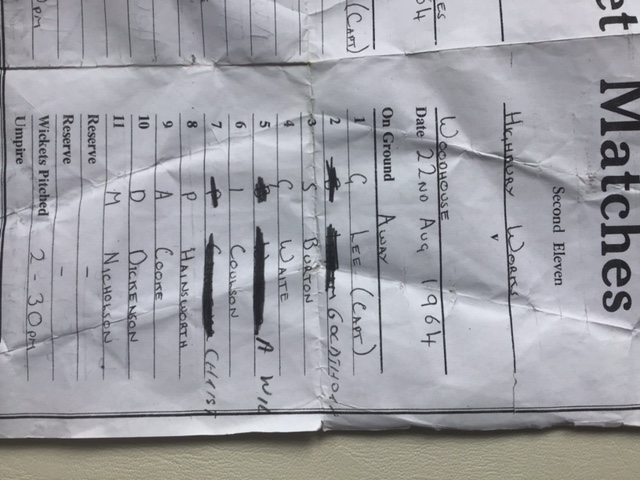 et Matches
Second Eleven
HIGHBURY WORKS
v
WOODHOUSE
Date 22ND AUG 1964
On Ground AWAY
1 G LEE (CAPT)
2
3 S BURTON
4 G WAITE
5 A
6 I COULSON
7
8 P HAINSWORTH
9 A COOKE
10 D DICKENSON
11 M NICHOLSON
Reserve -
Reserve -
Wickets Pitched 2-30pm
Umpire
ES
64
(CAPT)
pm